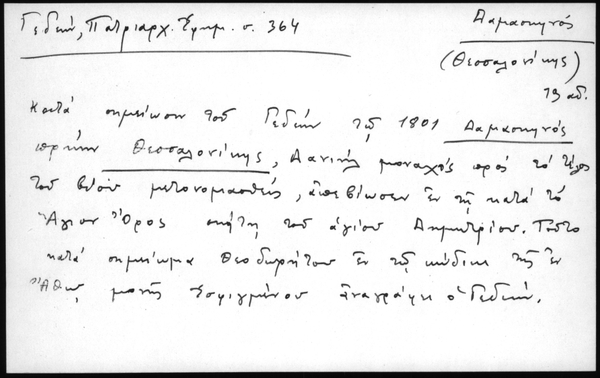 Γεδεών, Πατριαρχ. Ἐφημ. σ. 364
Δαμασκηνός
(Θεσσαλονίκης)
19 αἰ.
Κατά σημείωσιν τοῦ Γεδεών τῷ 1801 Δαμασκηνός
πρώην Θεσσαλονίκης, Δανιήλ μοναχός πρός τό τέλος
τοῦ βίου μετονομασθείς, ἀπεβίωσεν ἐν τῇ κατά τό
Ἅγιον Ὄρος σκήτῃ τοῦ ἁγίου Δημητρίου. Τοῦτο
κατά σημείωμα Θεοδωρήτου ἐν τῷ κώδικι τῆς ἐν
Ἄθῳ μονῆς Ἐσφιγμένου ἀναγράφει ὁ Γεδεών.